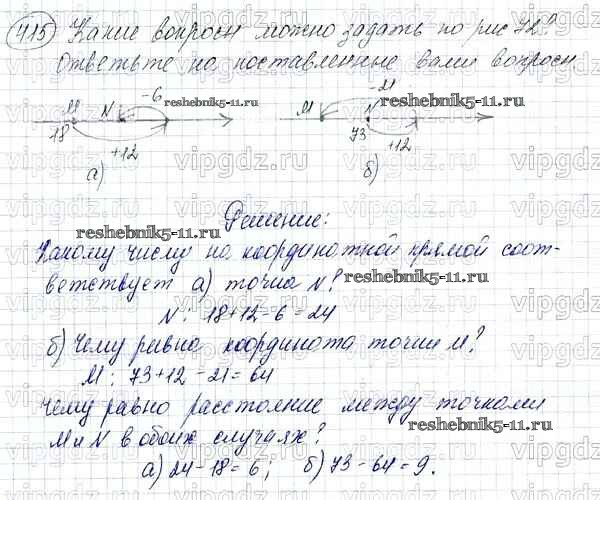 415 Какие вопросы можно задать по рис 72?
Ответьте на поставленные вами вопросы
-6 -21
M N reshebnik5-11.ru M N reshebnik5-11.ru
18 +12 73 +12
а) б)
Решение:
reshebnik5-11.ru
Какому числу на координатной прямой соот-
ветствует а) точка N? reshebnik5-11.ru
N: 18+12-6=24
б) Чему равна координата точки M?
M: 73+12-21=64
Чему равно расстояние между точками
M и N в обоих случаях? reshebnik5-11.ru
а) 24-18=6; б) 73-64=9.
vipgdz.ru